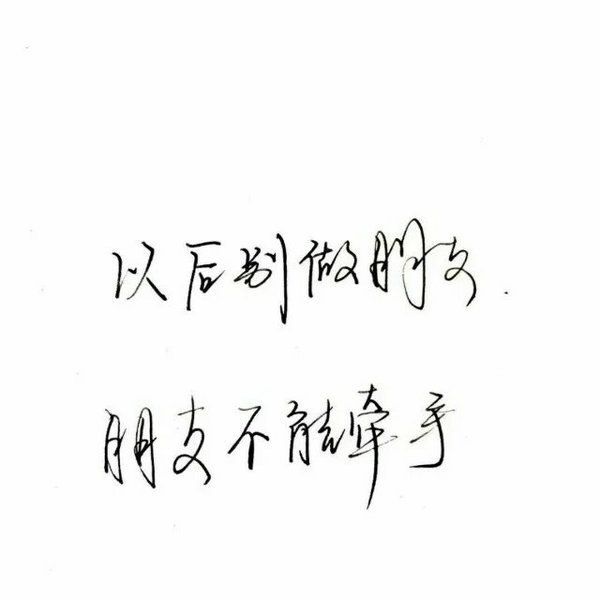 以后别做朋友.
朋友不能牵手